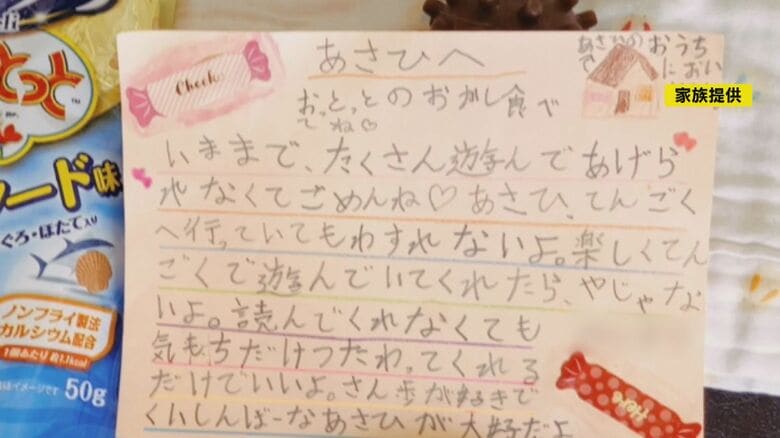 あさひへ
おっとっとのおかし食べ
てね♡
あさひの
おうち
におい
家族提供
Check
いままで、たくさん遊んであげら
れなくてごめんね♡あさひ、てんごく
へ行っていてもわすれないよ。楽しくてん
ごくで遊んでいてくれたら、やじゃな
いよ。読んでくれなくても
気もちだけつたわってくれる
だけでいいよ。さん歩が好きで
くいしんぼーなあさひが大好だよ
とっと
ード味
ぐろ・ほたて入り
ノンフライ製法
カルシウム配合
1個あたり 約1.1kcal
50g